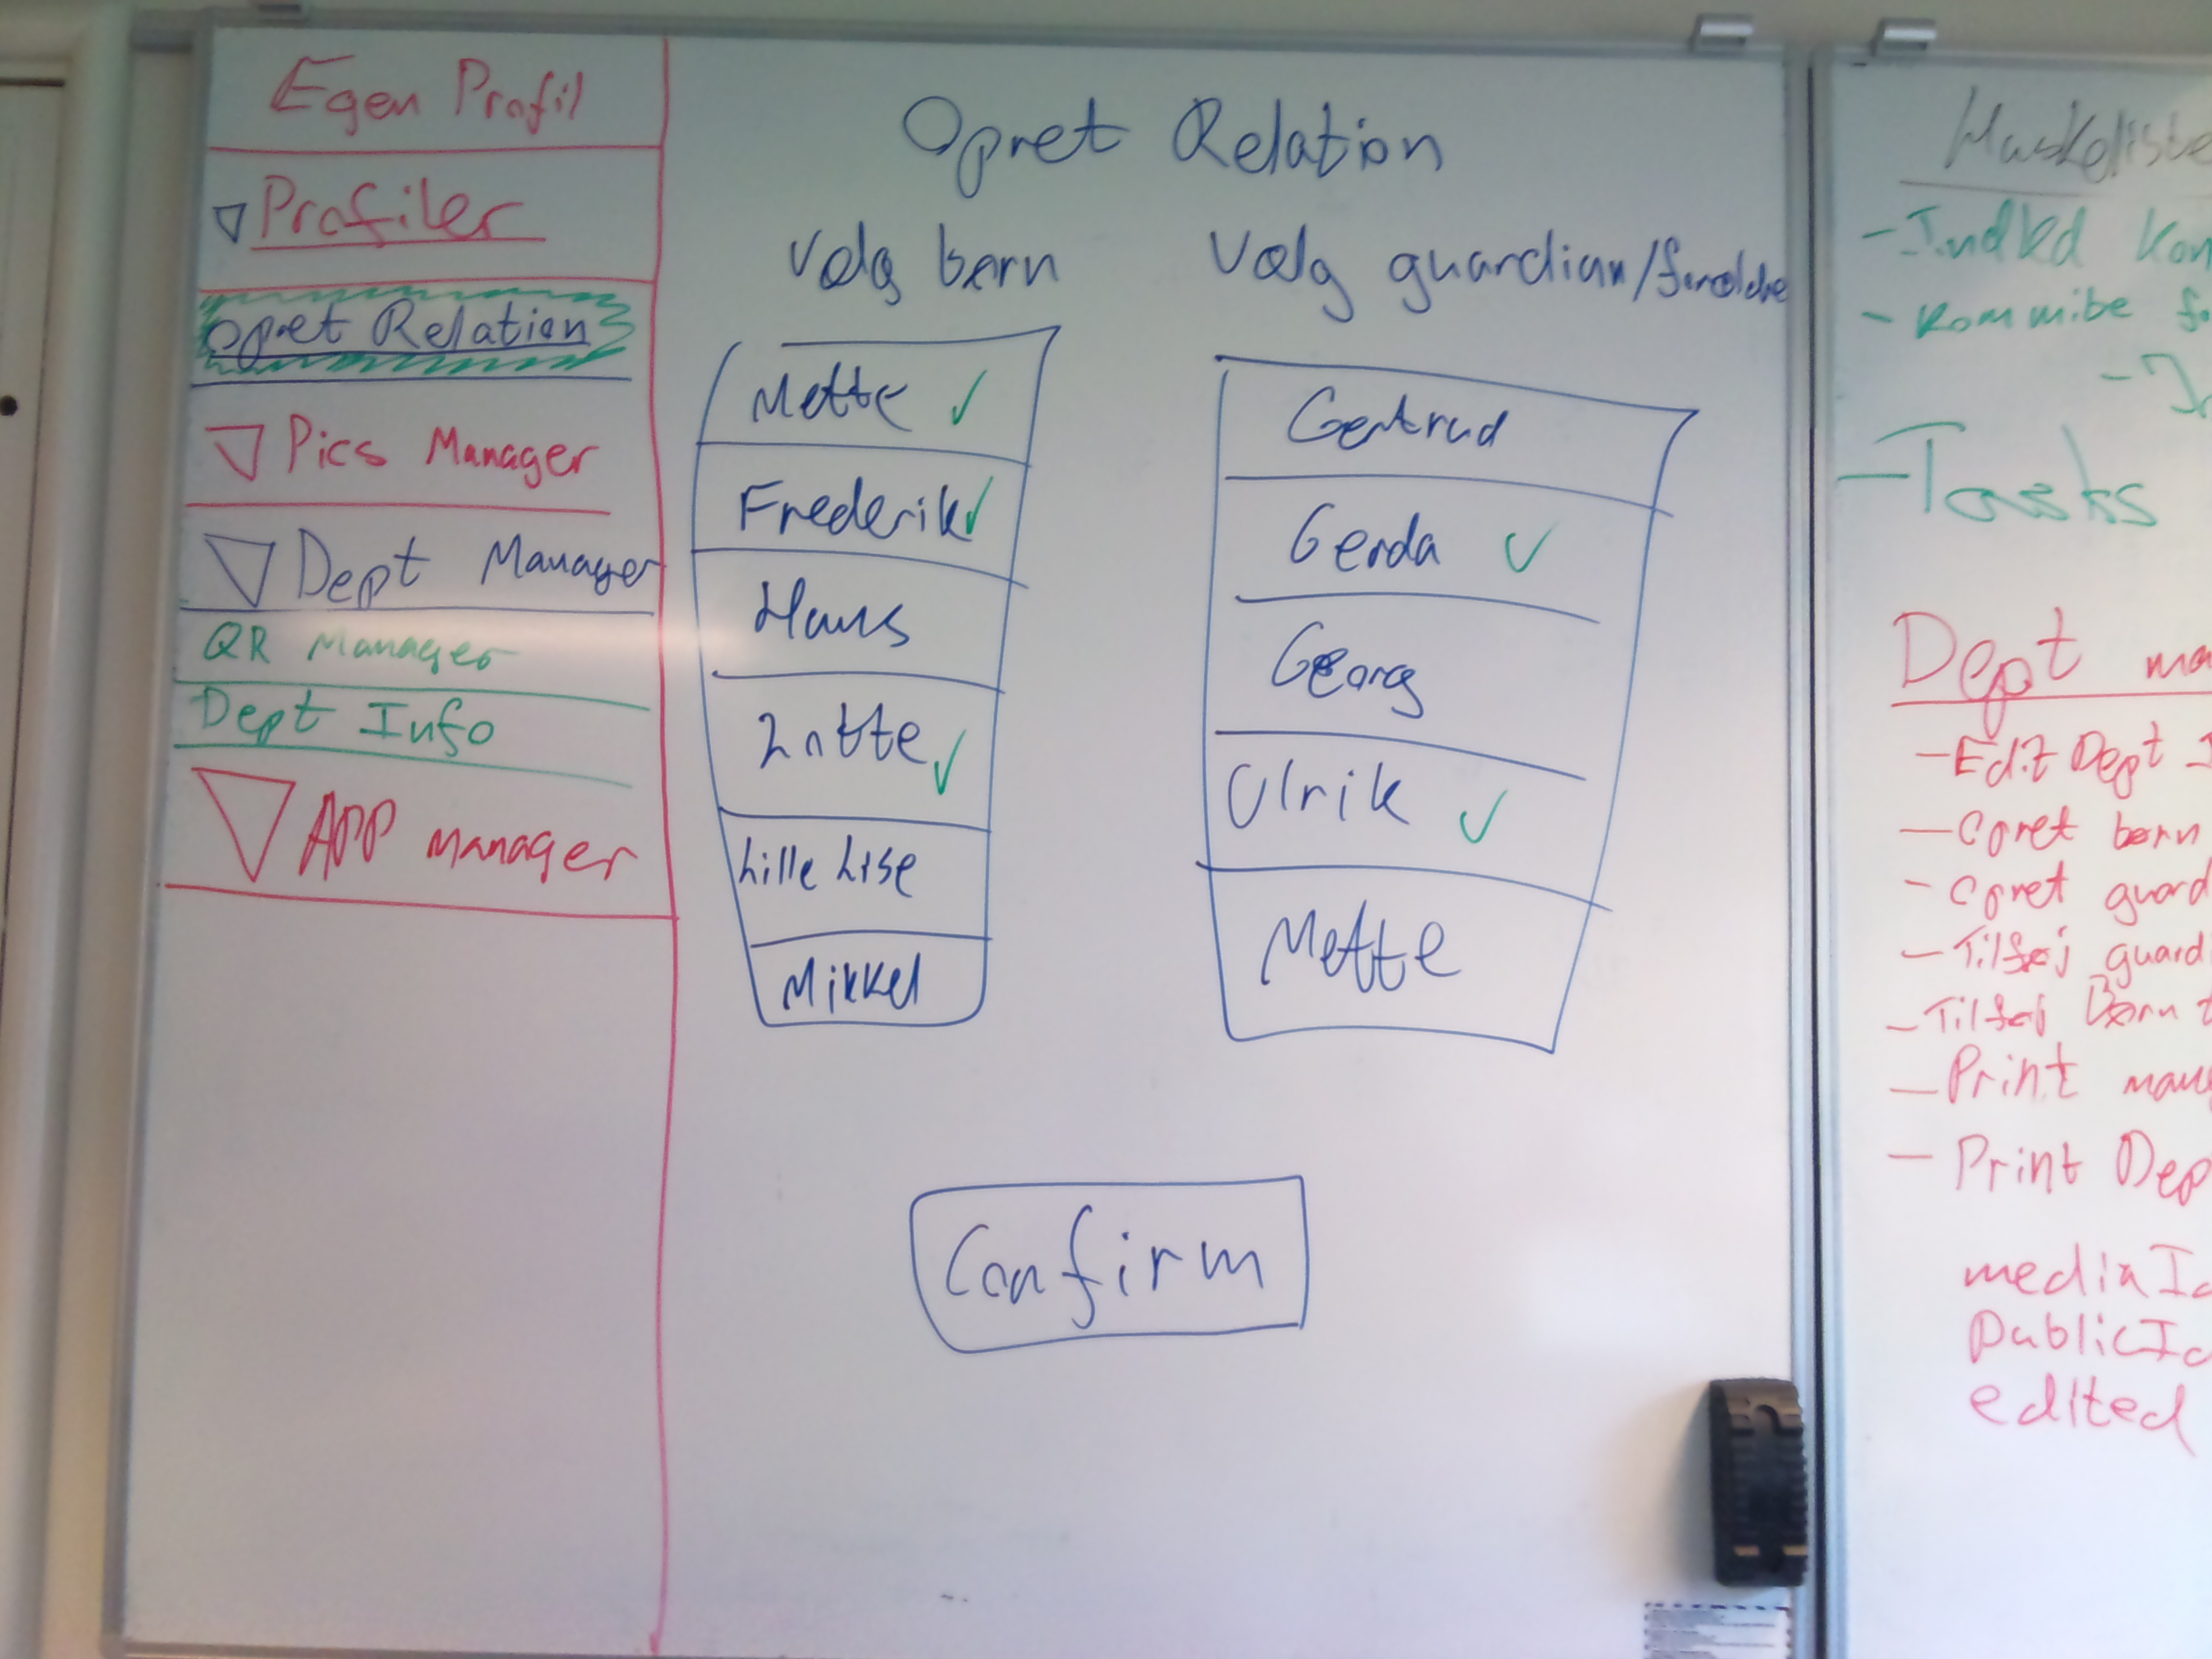 Egen Profil
Profiler
Opret Relation
Pics Manager
Dept Manager
QR Manager
Dept Info
APP manager
Opret Relation
Vælg børn
Mette ✓
Frederik ✓
Hans
Lotte ✓
Lille Lise
Mikkel
Vælg guardian/forældre
Gertrud
Gerda ✓
Georg
Ulrik ✓
Mette
Confirm
Huskeliste
- Kon
- 
- Tasks
Dept ma
- Edit Dept I
- Opret børn
- Opret guard
- Tilføj guard
- Tilføj Børn t
- Print man
- Print Dep
mediaId
publicId
edited